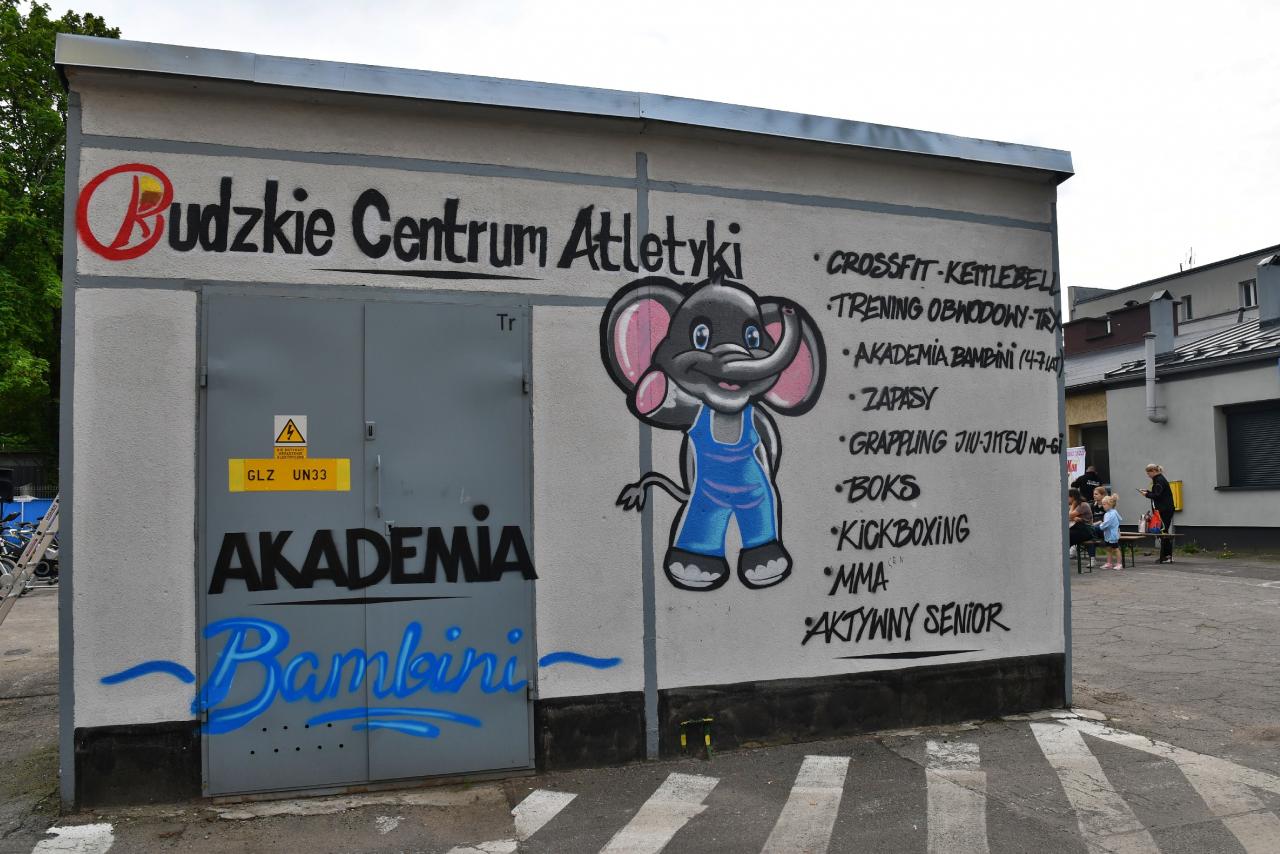 Rudzkie Centrum Atletyki
• CROSSFIT - KETTLEBELL
• TRENING OBWODOWY - TRX
• AKADEMIA BAMBINI (4-7 LAT)
• ZAPASY
• GRAPPLING JIU-JITSU NO-GI
• BOKS
• KICKBOXING
• MMA
• AKTYWNY SENIOR
Tr
NIE DOTYKAĆ
URZĄDZENIE
ELEKTRYCZNE
GLZ UN33
AKADEMIA
~Bambini~